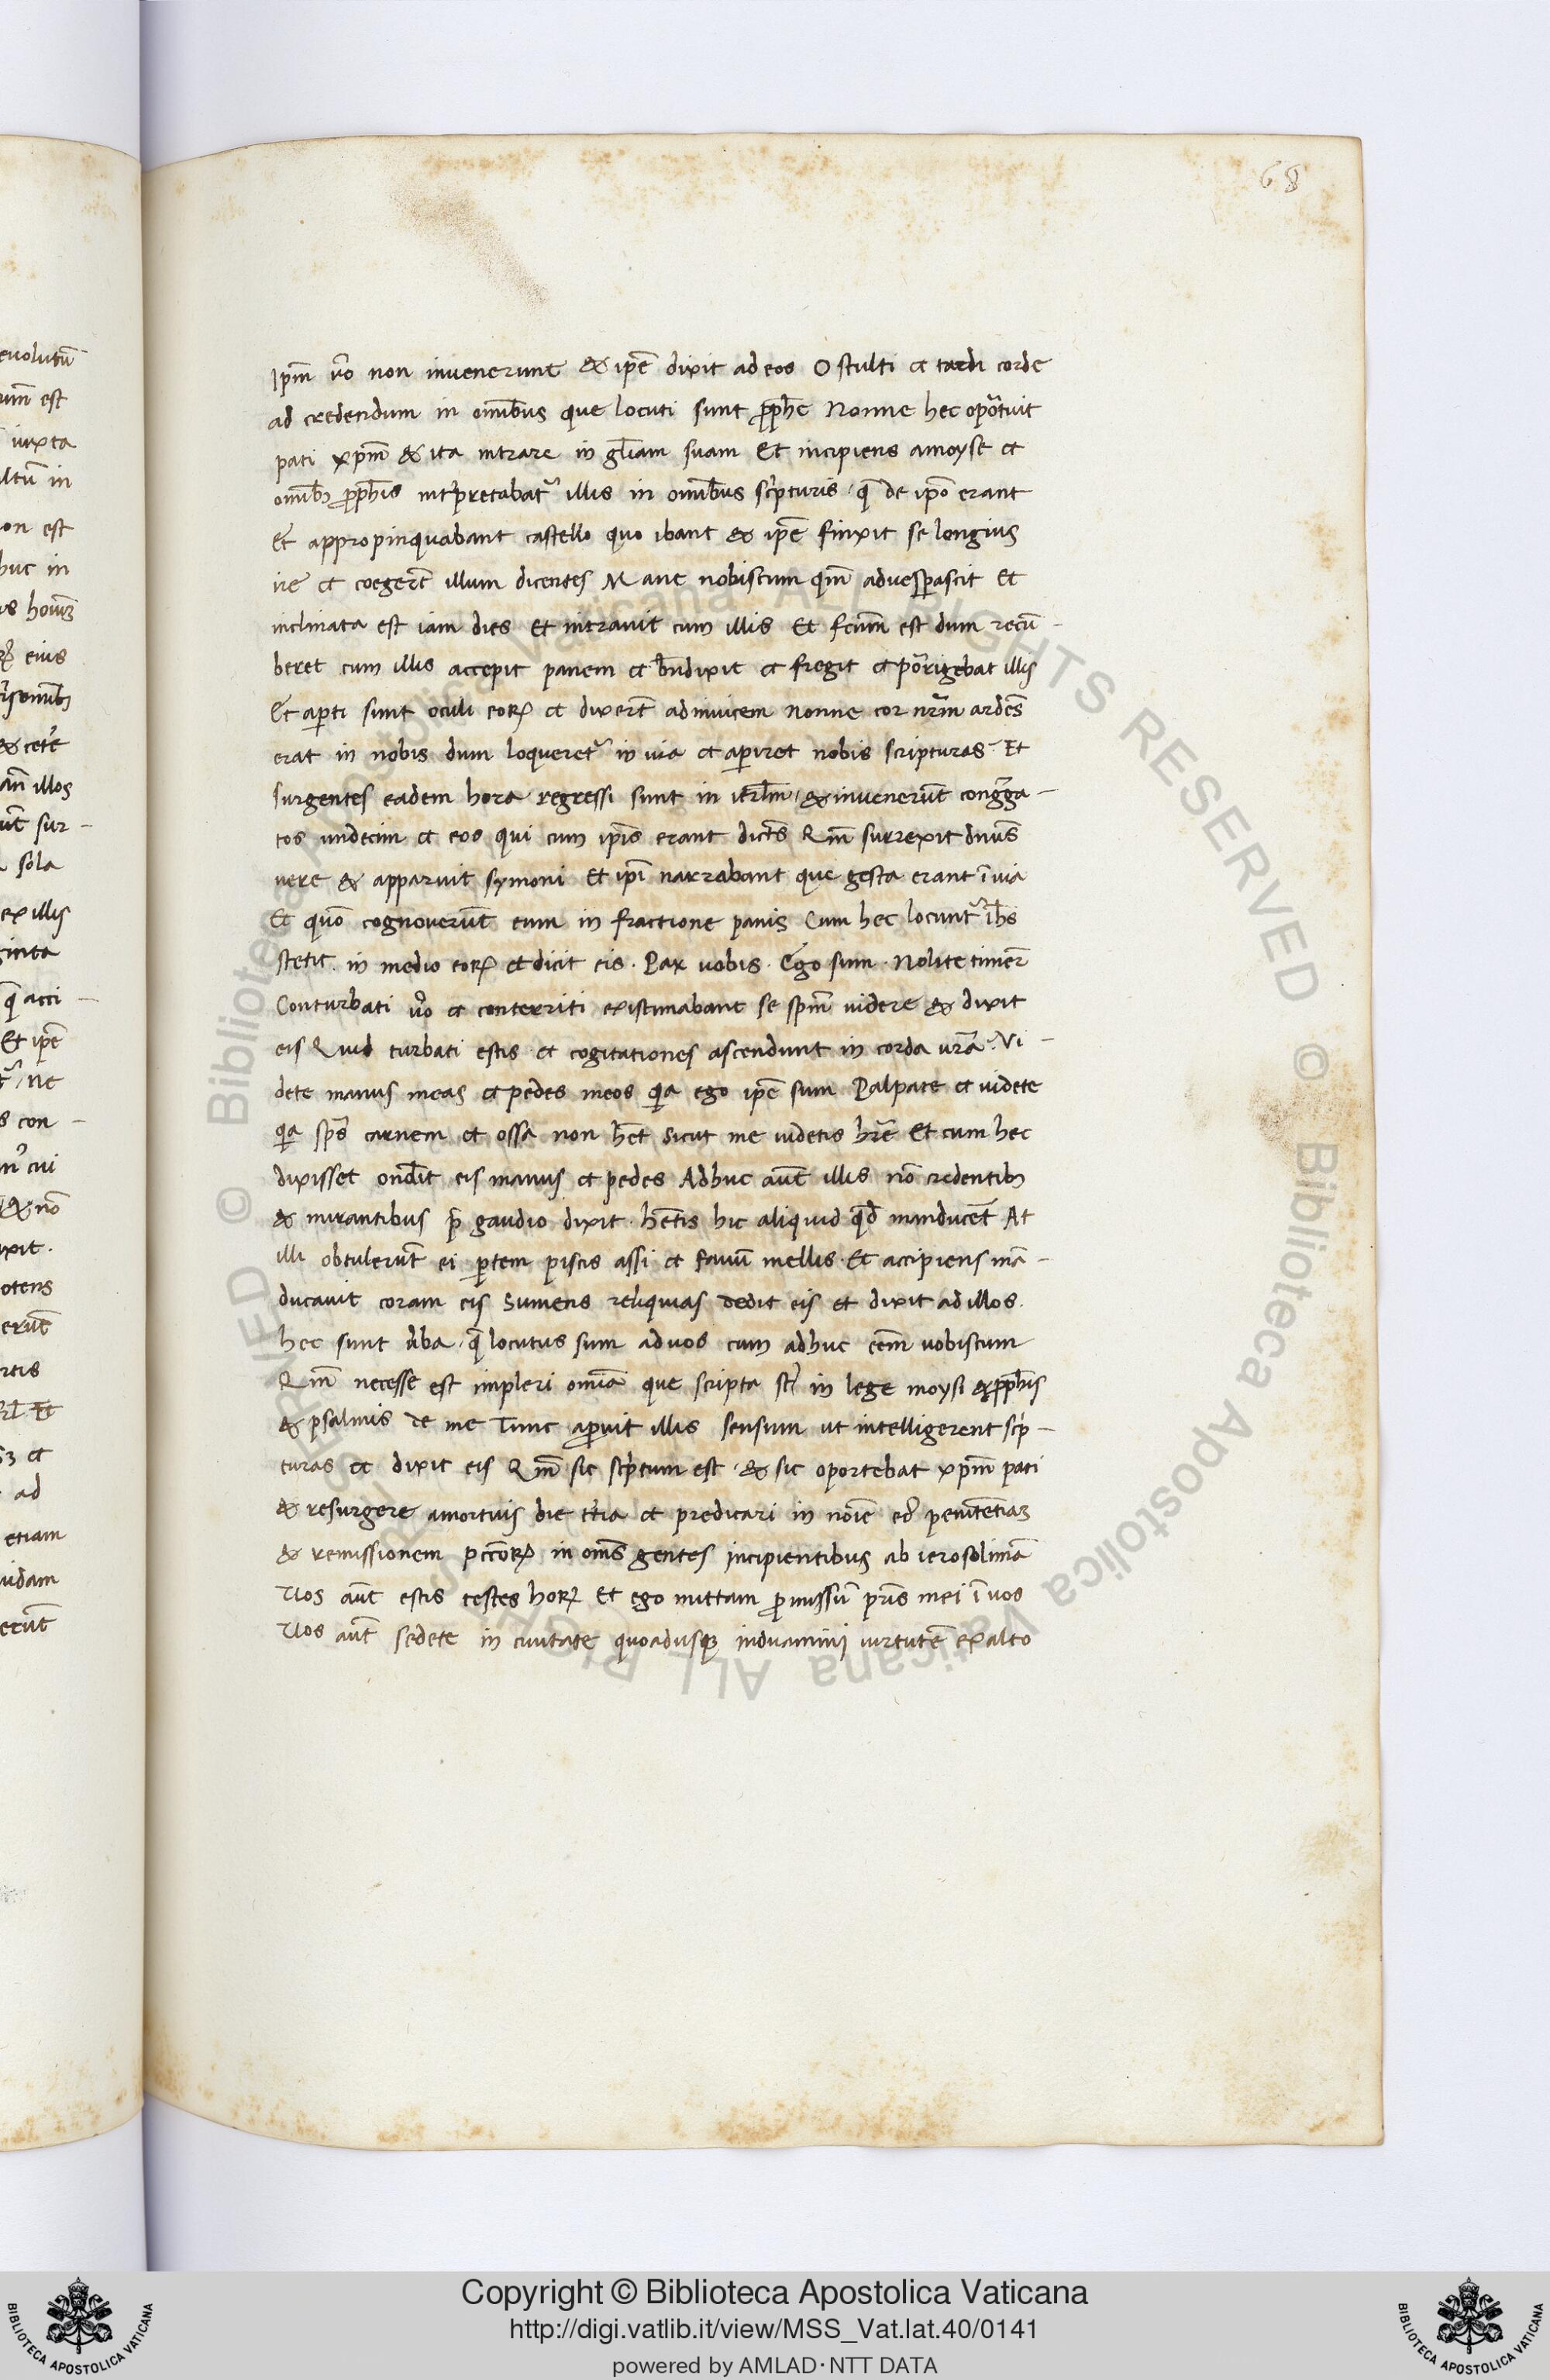 68
euolutū
um̄ est
iuxta
ultū in
on est
huc in
eius
& cete
an̄ illos
ūt sur-
sola
ex illis
ginta
q̄ acci-
Et ip̄e
s con-
& nō
ixit.
otens
erūt
rtis
ad
etiam
uidam
erūt
Ip̄m u̅o non inuenerunt & ip̄e dixit ad eos O stulti et tardi corde
ad credendum in omībus que locuti sunt ꝓph̄e Nonne hec oportuit
pati xp̄m & ita intrare in gl̄iam suam Et incipiens amoyse et
omīb; ꝓph̄is intp̄retabat᷑ illis in omībus scripturis q̄ de ip̄o erant
Et appropinquabant castello quo ibant & ip̄e finxit se longius
ire et coegert̄ illum dicentes Mane nobiscum qm̄ aduesꝑascit Et
inclinata est iam dies Et intrauit cum illis Et fc̄um est dum recū-
beret cum illis accepit panem et b̄ndixit et fregit et porrigebat illis
Et aꝑti sunt oculi eoꝝ et dixert̄ adinuicem Nonne cor nr̄m ardēs
erat in nobis dum loqueret᷑ in uia et aꝑiret nobis scripturas Et
surgentes eadem hora regressi sunt in ierl̄m & inuenerūt congrega-
tos undecim et eos qui cum ip̄is erant dict̄s Qm̄ surrexit dn̄us
uere & apparuit symoni Et ip̄i narrabant que gesta erant ī uia
Et quō cognouerūt eum in fractione panis Cum hec locunt᷑ ih̄s
stetit in medio eoꝝ et dicit eis. Pax uobis. Ego sum. Nolite timer̄
Conturbati u̅o et conterriti existimabant se sp̄m uidere & dixit
eis Quid turbati estis et cogitationes ascendunt in corda ur̄a. Vi-
dete manus meas et pedes meos qia ego ip̄e sum Palpate et uidete
qia sp̄s carnem et ossa non h̄et sicut me uidetis h̄re Et cum hec
dixisset ondit̄ eis manus et pedes Adhuc aut̄ illis nō credentib;
& mirantibus p̄ gaudio dixit. h̄etis hic aliquid qd̄ manducet̄ At
illi obtulerūt ei ꝑtem piscis assi et fauū mellis. Et accipiens mā-
ducauit coram eis Sumens reliquias dedit eis et dixit ad illos.
hec sunt u̅ba q̄ locutus sum ad uos cum adhuc eēm uobiscum
Qm̄ necesse est impleri omīa que scripta st̄ in lege moysi & ꝓph̄is
& psalmis de me Tunc aꝑuit illis sensum ut intelligerent scrip-
turas et dixit eis Qm̄ sic scriptum est & sic oportebat xp̄m pati
& resurgere amortuis die tt̄ia et predicari in noīe ei᷒ penitentiaꝫ
& remissionem pcc̄oꝝ in om̄s gentes incipientibus ab ierosolimā
Uos aut̄ estis testes hoꝝ Et ego mittam ꝓmissū pr̄is mei ī uos
Uos aut̄ sedete in ciuitate quoadusqꝫ induamini uirtutē ex alto
© Biblioteca Apostolica Vaticana ALL RIGHTS RESERVED © Biblioteca Apostolica Vaticana ALL RIGHTS RESERVED
Copyright © Biblioteca Apostolica Vaticana
http://digi.vatlib.it/view/MSS_Vat.lat.40/0141
powered by AMLAD·NTT DATA
BIBLIOTECA APOSTOLICA VATICANA
BIBLIOTECA APOSTOLICA VATICANA